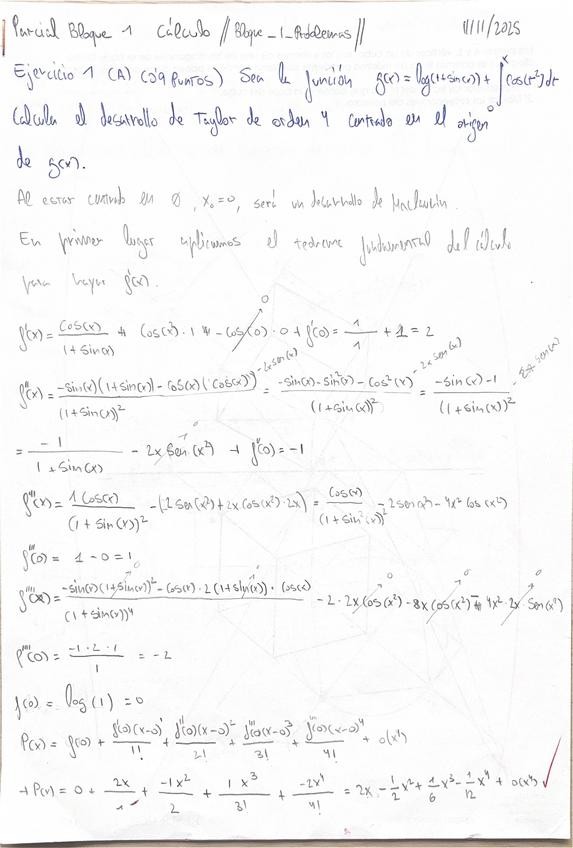 Parcial Bloque 1 Cálculo // Bloque_1_Problemas // 11/11/2025
Ejercicio 1 (A) (0'9 puntos) Sea la función g(x) = log(1+sin(x)) + ∫₀ˣ cos(t²)dt
Calcula el desarrollo de Taylor de orden 4 centrado en el origen
de g(x).
Al estar centrado en 0, x₀=0, será un desarrollo de Maclaurin.
En primer lugar aplicamos el teorema fundamental del cálculo
para hayar f'(x).
f'(x) = cos(x)/(1+sin(x)) + cos(x²)·1 - cos(0)·0 → f'(0) = 1/1 + 1 = 2
f''(x) = (-sin(x)(1+sin(x)) - cos(x)(cos(x)))/(1+sin(x))² - 2x sen(x²) = (-sin(x)-sin²(x)-cos²(x))/(1+sin(x))² - 2x sen(x²) = (-sin(x)-1)/(1+sin(x))² - 2x sen(x²)
= -1/(1+sin(x)) - 2x sen(x²) → f''(0) = -1
f'''(x) = 1 cos(x)/(1+sin(x))² - (2 sen(x²) + 2x cos(x²)·2x) = cos(x)/(1+sin(x))² - 2 sen(x²) - 4x² cos(x²)
f'''(0) = 1 - 0 = 1
f''''(x) = (-sin(x)(1+sin(x))² - cos(x)·2(1+sin(x))·cos(x))/(1+sin(x))⁴ - 2·2x cos(x²) - 8x cos(x²) + 4x²·2x·sen(x²)
f''''(0) = -1·2·1/1 = -2
f(0) = log(1) = 0
P(x) = f(0) + f'(0)(x-0)¹/1! + f''(0)(x-0)²/2! + f'''(0)(x-0)³/3! + f''''(0)(x-0)⁴/4! + o(x⁴)
→ P(x) = 0 + 2x/1 + -1x²/2 + 1x³/3! + -2x⁴/4! = 2x - 1/2 x² + 1/6 x³ - 1/12 x⁴ + o(x⁴) ✓